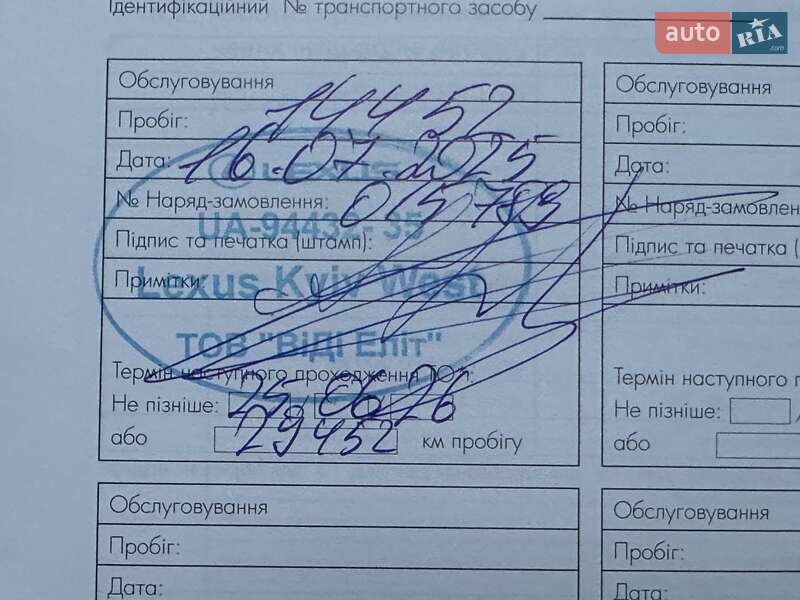 Ідентифікаційний № транспортного засобу
auto RIA .com
Обслуговування
Пробіг: 14452
Дата: 16.07.2025
№ Наряд-замовлення: 015789
Підпис та печатка (штамп):
Примітки:
LEXUS
UA-94432-35
Lexus Kyiv West
ТОВ "ВІДІ Еліт"
Термін наступного проходження ТО:
Не пізніше: 25/06/26
або 29452 км пробігу
Обслуговування
Пробіг:
Дата:
№ Наряд-замовлен
Підпис та печатка (
Примітки:
Термін наступного п
Не пізніше:
або
Обслуговування
Пробіг:
Дата:
Обслуговування
Пробіг:
Дата: